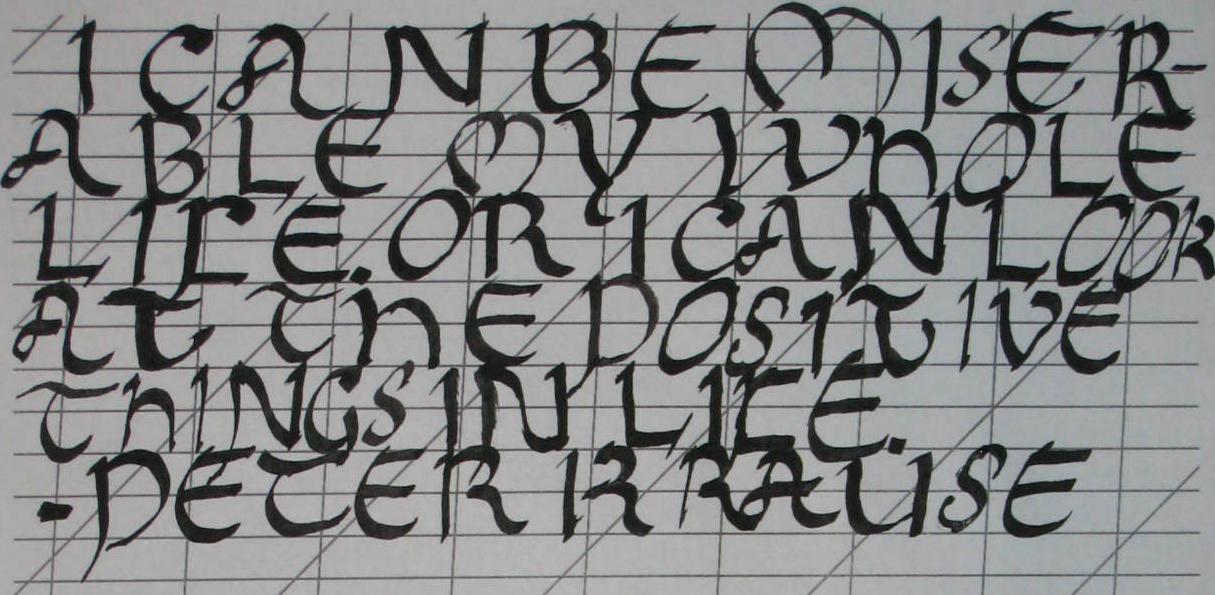 I CAN BE MISER-
ABLE MY WHOLE
LIFE. OR I CAN LOOK
AT THE POSITIVE
THINGS IN LIFE.
- PETER KRAUSE